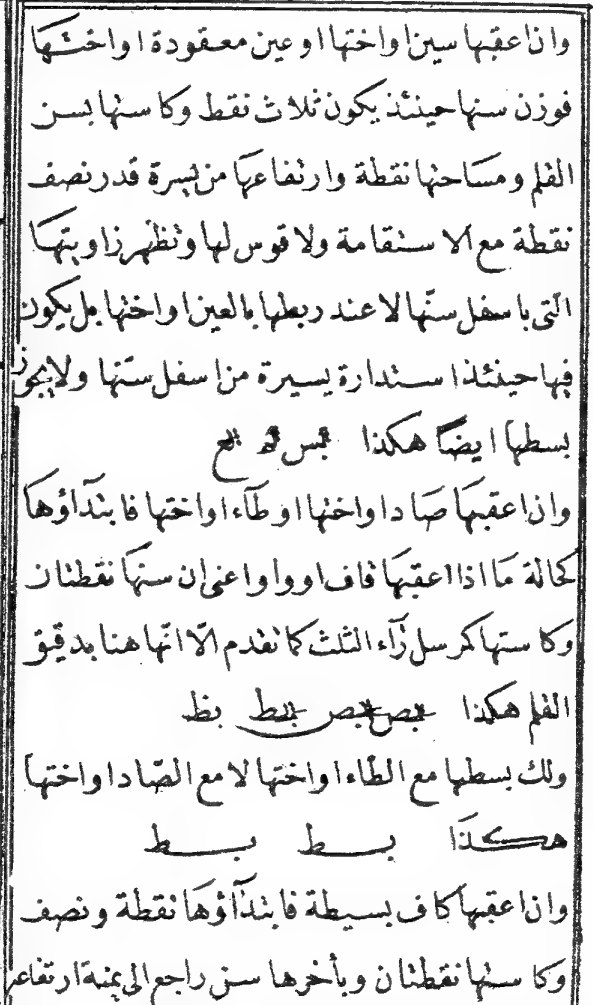 وان اعقبها سين او اختها او عين معقودة او اختها
فوزن سنها حينئذ يكون ثلاث نقط وكا سنها بسن
القلم ومساحتها نقطة وارتفاعها من يسرة قدر نصف
نقطة مع الاستقامة ولا قوس لها وتظهر زاويتها
التى باسفل سنّها لا عند ربطها بالعين او اختها بل يكون
فيها حينئذ استدارة يسيرة من اسفل سنّها ولا يجوز
بسطها ايضًا هكذا بس تمـ بع
وان اعقبها صاد او اختها او طآء او اختها فابتدآؤها
كحالة ما اذا اعقبها قاف او واو اعنى ان سنها نقطتان
وكا سنها كمرسل رآء الثلث كما تقدم الّا انّها هنا بدقيق
القلم هكذا بص بص بط بظ
ولك بسطها مع الطاء او اختها لا مع الصّاد او اختها
هكذا بسط بسط
وان اعقبها كاف بسيطة فابتدآؤها نقطة ونصف
وكا سنها نقطتان وبأخرها سن راجع الى يمنة ارتفاعه